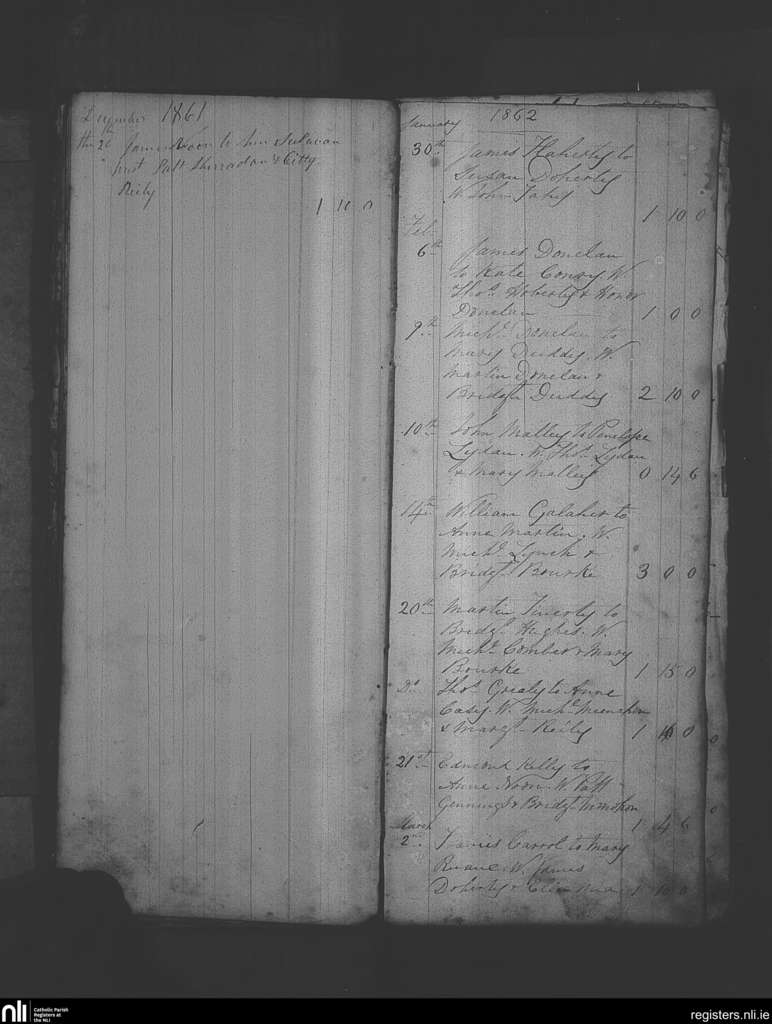 December 1861
the 26th James Noon to Sulavan
Patt Sherradan & Citty
Reily
1 10 0
January 1862
30th James Flaherty to
Susan Doherty
W John Fahy
1 10 0
Feb
6th James Donelan
to Kate Conry W
Thos. & Honor
Donelan 1 0 0
9th Michl. Donelan to
Mary Duddy. W.
Martin Donelan &
Bridgt Duddy 2 10 0
10th John Malley to Penelope
Lydan. W. Thos. Lydan
& Mary Malley 0 14 6
14th William Galaher to
Anne Martin. W.
Michl. Lynch &
Bridgt. Bourke 3 0 0
20th Martin to
Bridgt. Hughes. W.
Michl. Comber & Mary
Bourke 1 15 0
Do. Thos. Grealy to Anne
Casey. W. Michl.
& Margt. Reily 1 10 0
21st Edmond Kelly to
Anne Noon. W. Patt
Genning & Bridgt.
1 4 6
March
2nd Carrol to Mary
Ruane. W. James
Doherty & 1 10 0
nli
Catholic Parish
Registers at
the NLI
registers.nli.ie